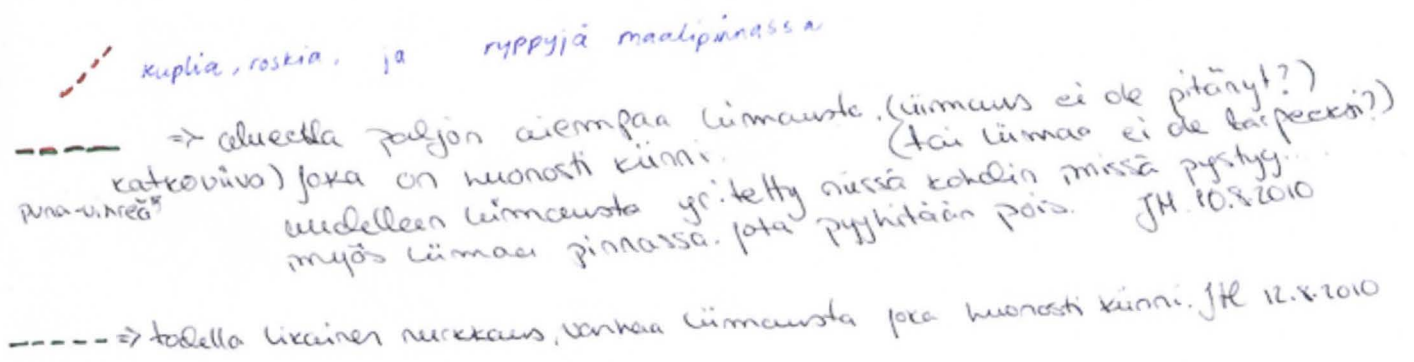 kuplia, roskia, ja ryppyjä maalipinnassa
=> alueella paljon aiempaa liimausta. (liimaus ei ole pitänyt?)
katkoviiva) joka on huonosti kiinni. (tai liimaa ei ole tarpeeksi?)
puna-vihreä uudelleen liimausta yritetty niissä kohdin missä pystyy...
myös liimaa pinnassa. jota pyyhitään pois. JH 10.8.2010
=> todella likainen nurkkaus, vanhaa liimausta joka huonosti kiinni. JH 12.8.2010